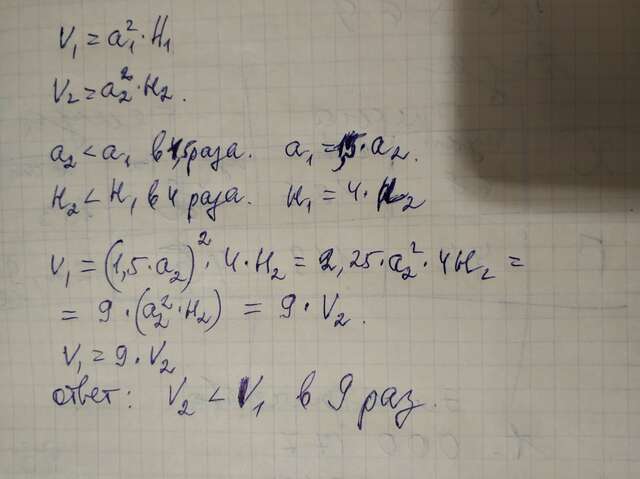 V₁ = a₁²·H₁
V₂ = a₂²·H₂.
a₂ < a₁ в 1,5 раза. a₁ = 1,5·a₂.
H₂ < H₁ в 4 раза. H₁ = 4·H₂
V₁ = (1,5·a₂)²·4·H₂ = 2,25·a₂²·4H₂ =
= 9·(a₂²·H₂) = 9·V₂.
V₁ = 9·V₂
ответ: V₂ < V₁ в 9 раз.